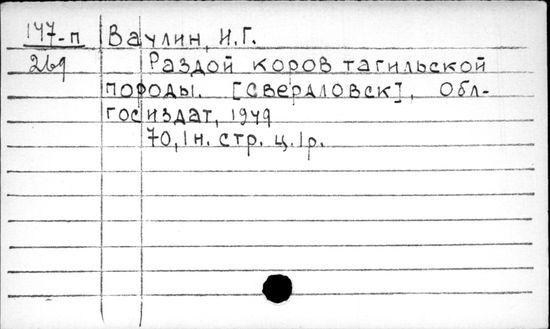 147-п Ваулин, И.Г.
269 Раздой коров тагильской
породы. [Свердловск], Обл-
госиздат, 1949
70, 1 н. стр. ц. 1р.